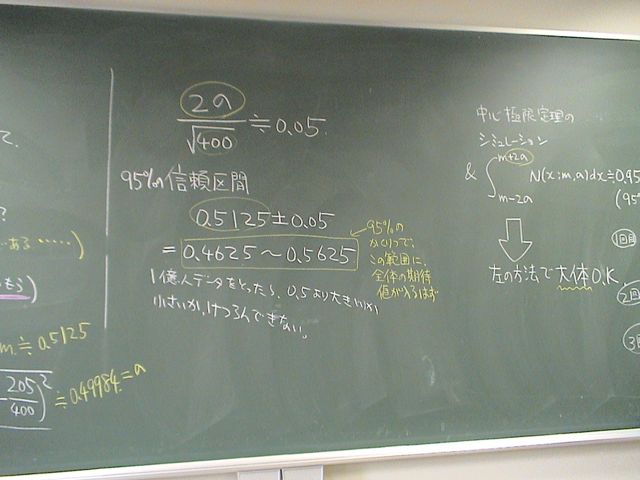 2.
?
ある ‥‥‥)
もろ)
m ≒ 0.5125
205
400
)²
≒ 0.49984 = a
2a
√400
≒ 0.05
95%の信頼区間
0.5125 ± 0.05
= 0.4625 ～ 0.5625
95%の
かくりつで、
この範囲に、
全体の期待
値が入るはず
1億人データをとったら、0.5より大きいか
小さいか、けつろんできない。
中心極限定理の
シミュレーション
& ∫
m+2a
m-2a
N(x:m,a)dx≒0.95
(95
左の方法で大体O.K.
1回目
2回
3回